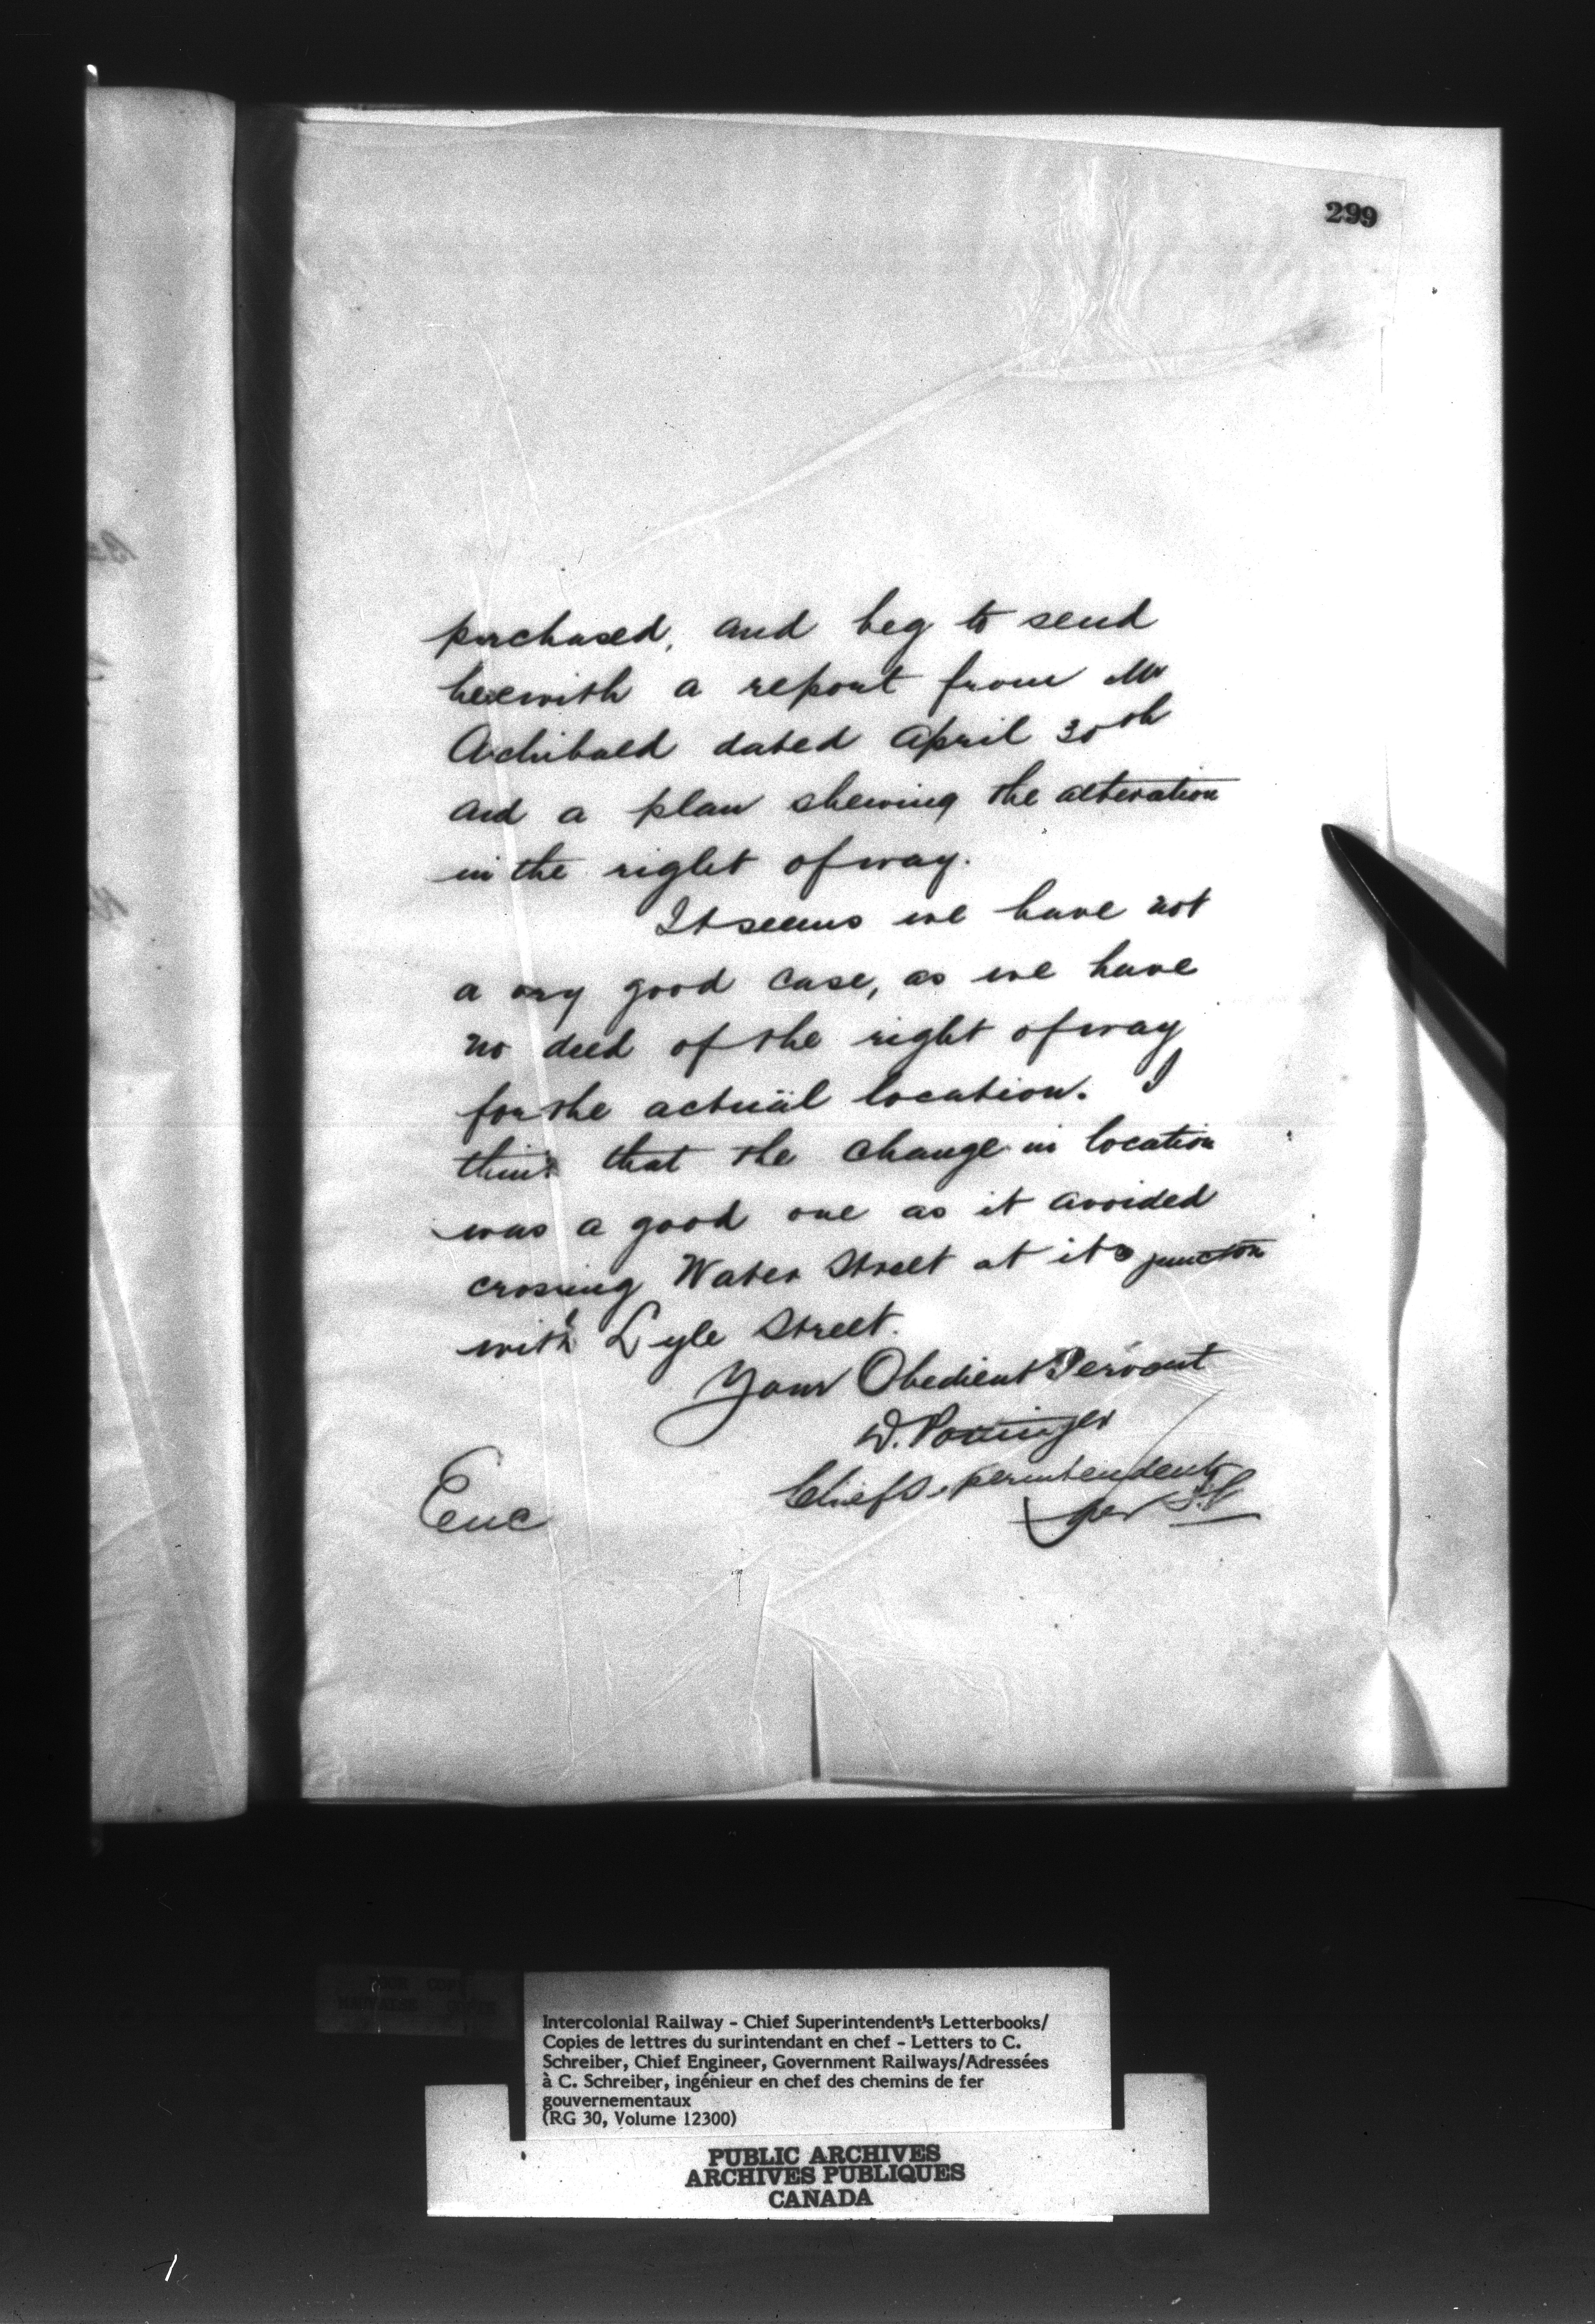 299
purchased, and beg to send
herewith a report from Mr
Archibald dated April 30th
and a plan shewing the alteration
in the right of way.
It seems we have not
a very good case, as we have
no deed of the right of way
for the actual location. I
think that the change in location
was a good one as it avoided
crossing Water Street at its junction
with Lyle Street.
Your Obedient Servant
D. Pottinger
Chief Superintendent
per
Enc
Intercolonial Railway - Chief Superintendent's Letterbooks/
Copies de lettres du surintendant en chef - Letters to C.
Schreiber, Chief Engineer, Government Railways/Adressées
à C. Schreiber, ingénieur en chef des chemins de fer
gouvernementaux
(RG 30, Volume 12300)
PUBLIC ARCHIVES
ARCHIVES PUBLIQUES
CANADA